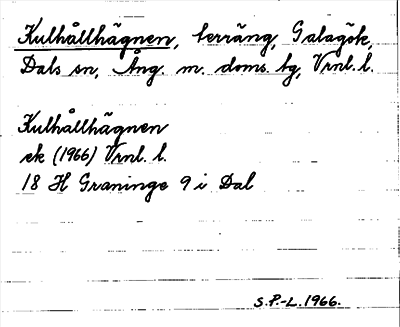 Kulhållhägnen, terräng, Galagök,
Dals sn, Ång. m. doms. tg, Vrnl. l.
Kulhållhägnen
ek (1966) Vrnl. l.
18 H Graninge 9 i Dal
S.P.-L. 1966.